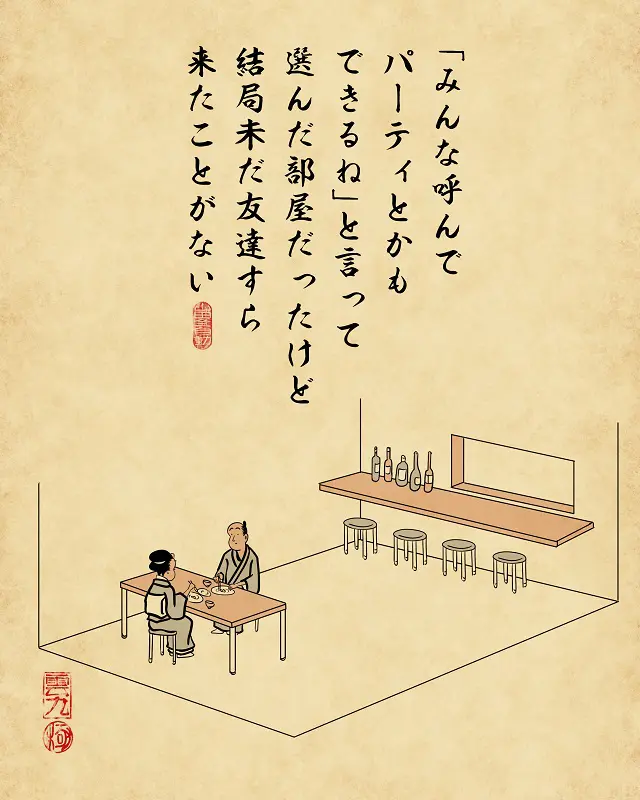 「みんな呼んで
パーティとかも
できるね」と言って
選んだ部屋だったけど
結局未だ友達すら
来たことがない